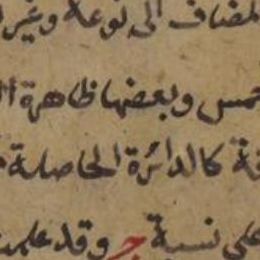 المضاف الى نوعه وغير
خمس وبعضها ظاهرة ا
كالدائرة الحاصلة
على نسبة ج وقد علمت